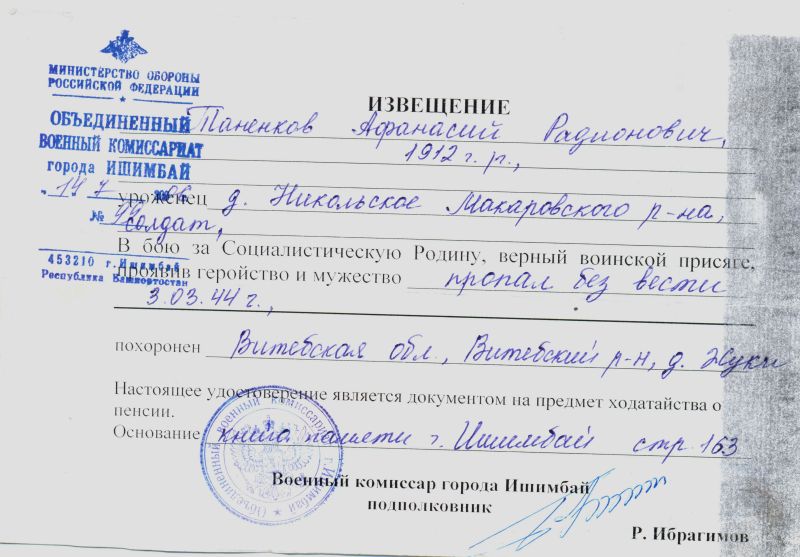 МИНИСТЕРСТВО ОБОРОНЫ
РОССИЙСКОЙ ФЕДЕРАЦИИ
ОБЪЕДИНЕННЫЙ
ВОЕННЫЙ КОМИССАРИАТ
города ИШИМБАЙ
" 14 7 2006
№ 44
453210 г.Ишимбай
Республика Башкортостан
ИЗВЕЩЕНИЕ
Таненков Афанасий Радионович,
1912 г.р.,
уроженец д. Никольское Макаровского р-на,
солдат,
В бою за Социалистическую Родину, верный воинской присяге,
проявив геройство и мужество пропал без вести
3.03.44 г.,
похоронен Витебская обл., Витебский р-н, д. Жуки
Настоящее удостоверение является документом на предмет ходатайства о
пенсии.
Основание книга памяти г. Ишимбай стр. 163
Объединенный военный комиссариат г. Ишимбай
Военный комиссар города Ишимбай
подполковник
Р. Ибрагимов